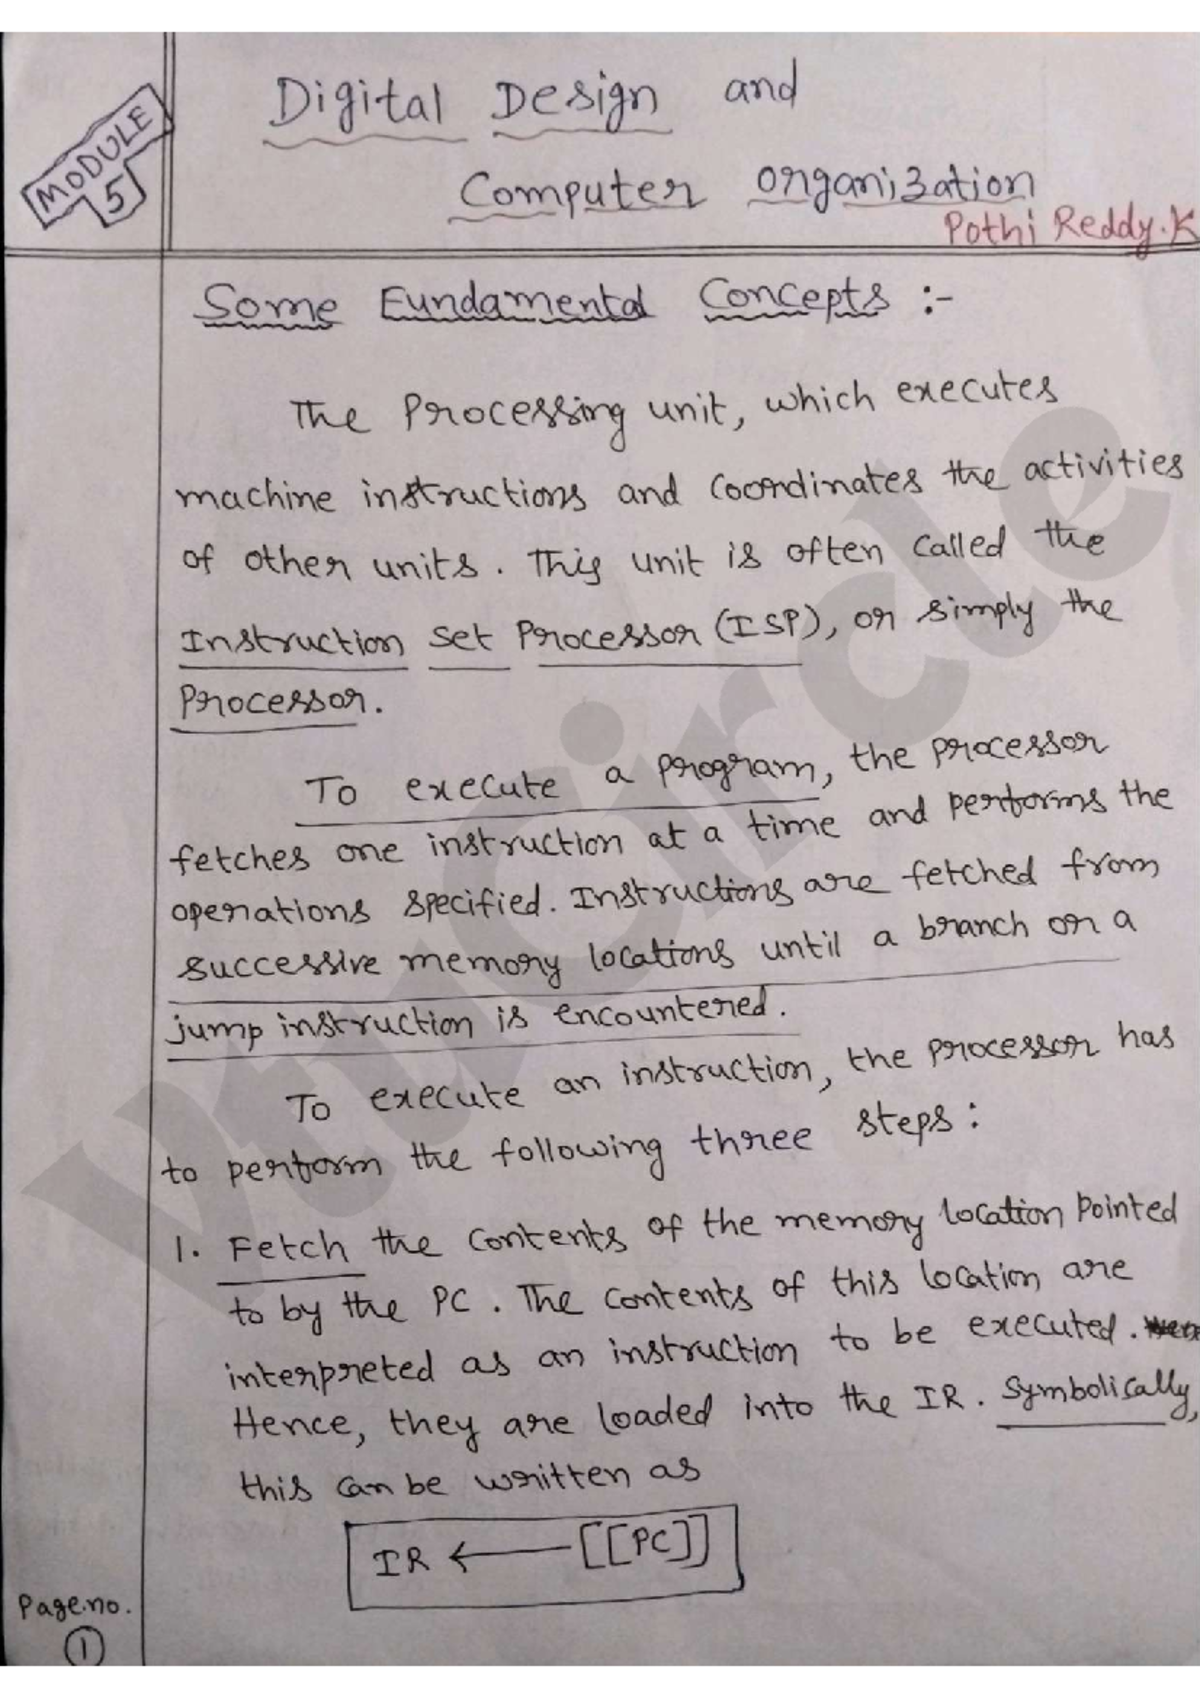 MODULE
5
Digital Design and
Computer Organization
Pothi Reddy.K
Some Fundamental Concepts :-
The Processing unit, which executes
machine instructions and coordinates the activities
of other units. This unit is often called the
Instruction set Processor (ISP), or simply the
Processor.
To execute a program, the processor
fetches one instruction at a time and performs the
operations specified. Instructions are fetched from
successive memory locations until a branch or a
jump instruction is encountered.
To execute an instruction, the processor has
to perform the following three steps:
1. Fetch the contents of the memory location pointed
to by the PC. The contents of this location are
interpreted as an instruction to be executed.
Hence, they are loaded into the IR. Symbolically,
this can be written as
IR ← [[PC]]
Page.no.
1
VtuCircle